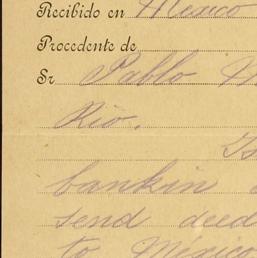 Recibido en Mexico
Procedente de
Sr Pablo M
Rio.
Is
bankin
send deed
to México